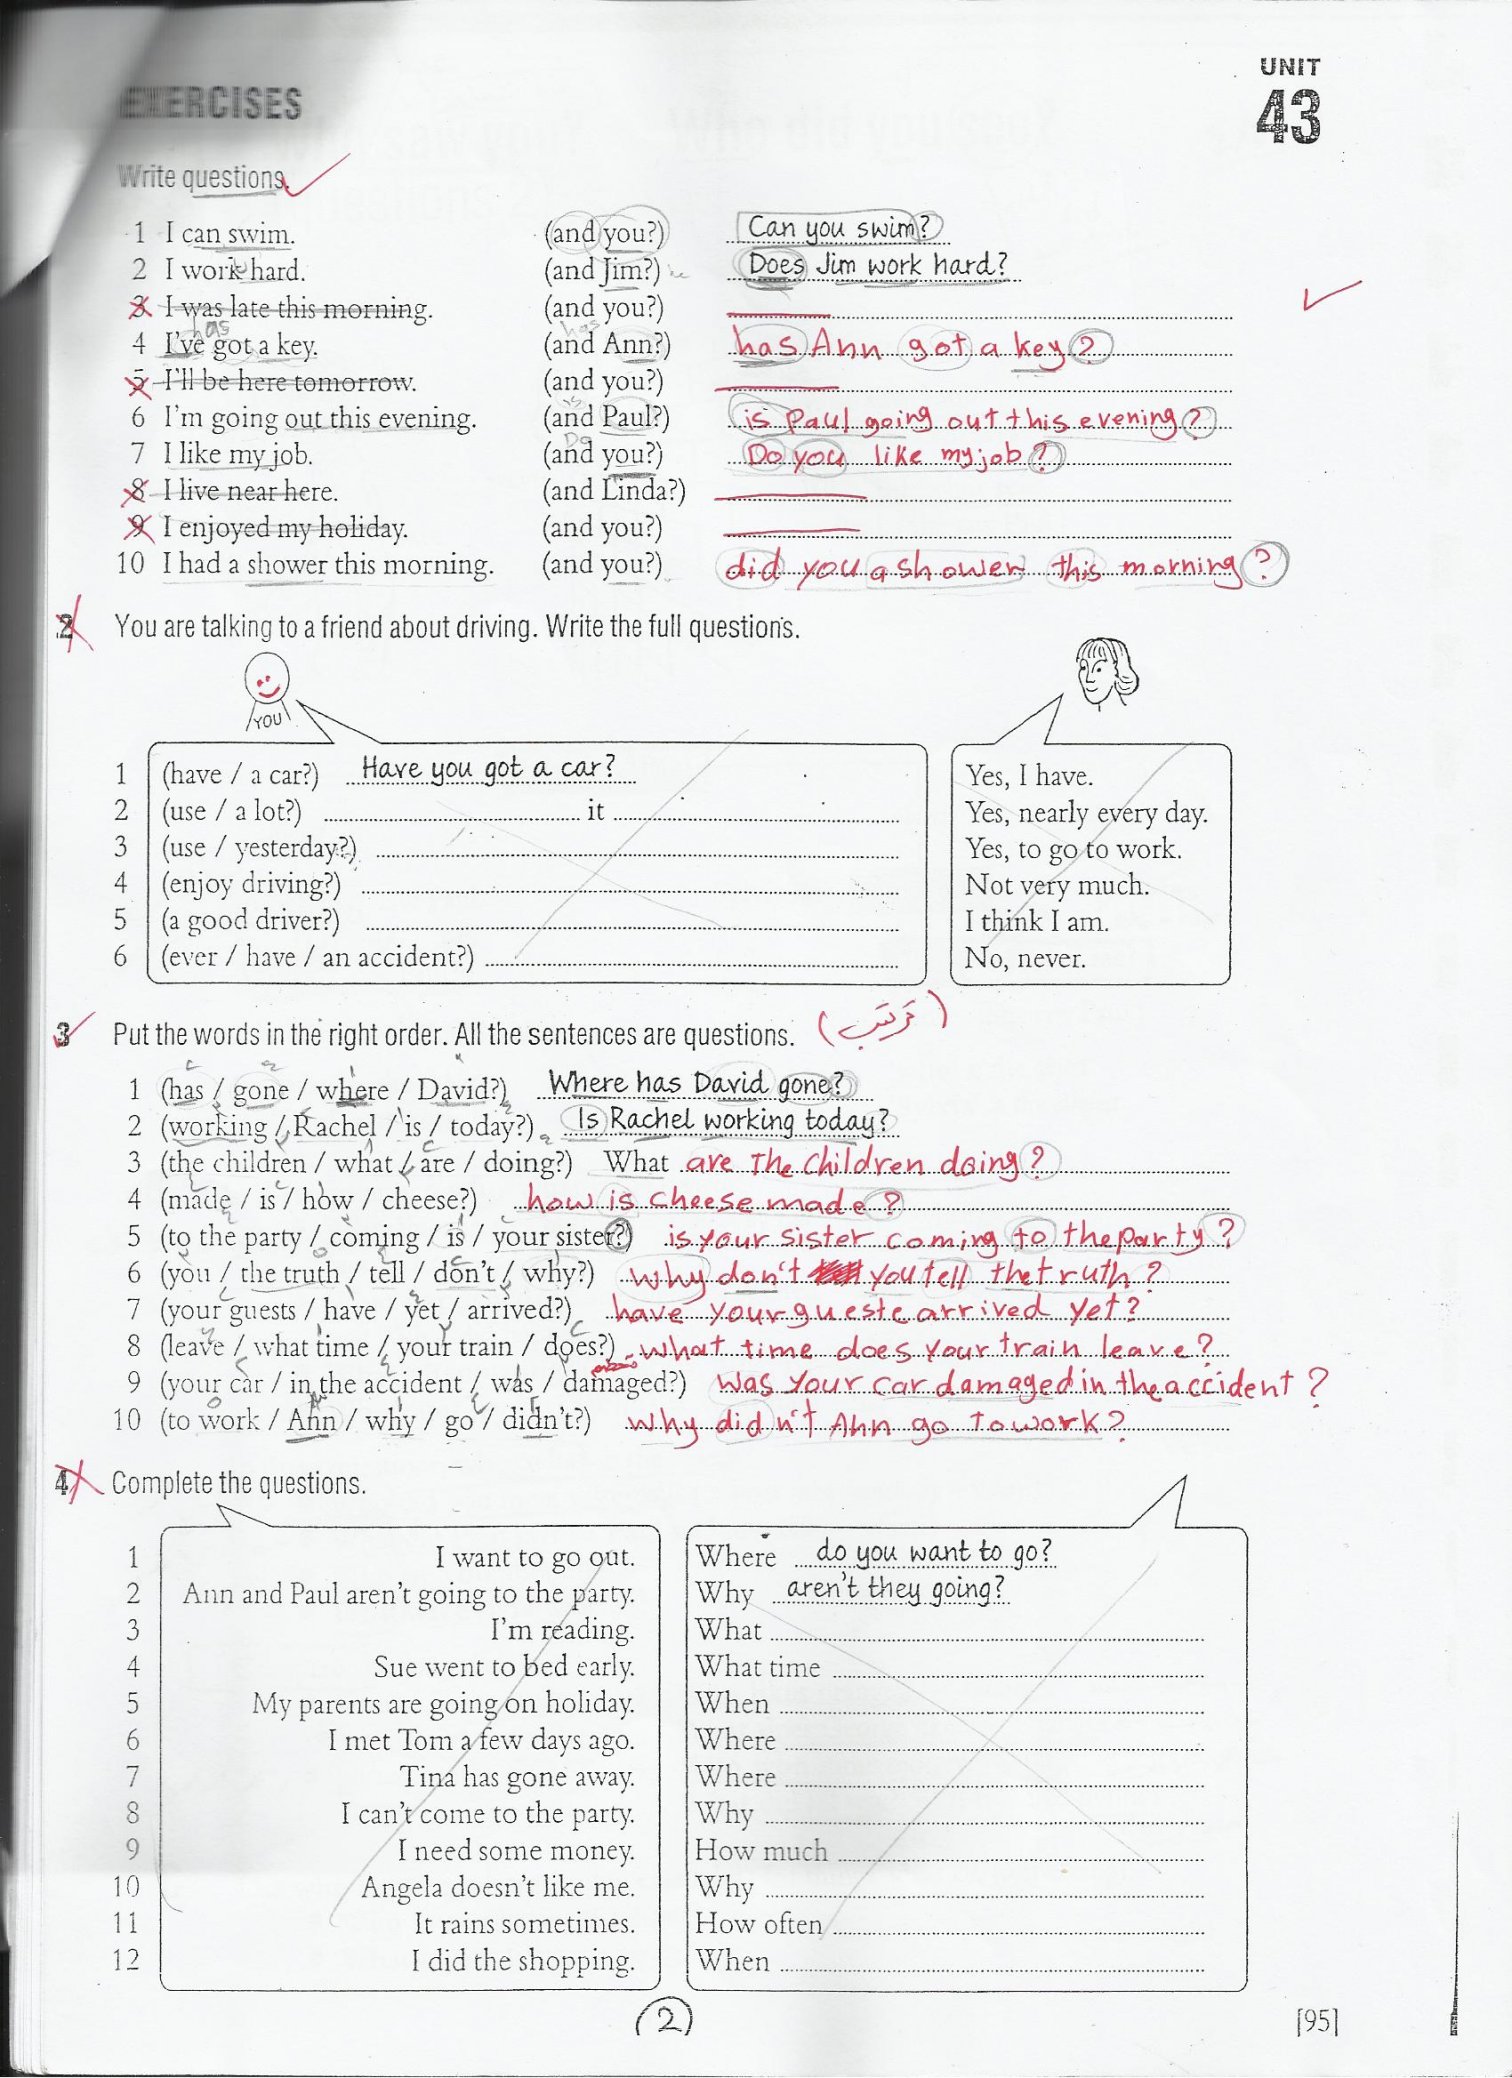 UNIT
43
EXERCISES
Write questions.
1 I can swim. (and you?) Can you swim?
2 I work hard. (and Jim?) Does Jim work hard?
3 I was late this morning. (and you?)
has has
4 I've got a key. (and Ann?) has Ann got a key?
5 I'll be here tomorrow. (and you?)
is
6 I'm going out this evening. (and Paul?) is Paul going out this evening?
Do
7 I like my job. (and you?) Do you like my job?
8 I live near here. (and Linda?)
9 I enjoyed my holiday. (and you?)
10 I had a shower this morning. (and you?) did you a shower this morning?
2 You are talking to a friend about driving. Write the full questions.
YOU
1 (have / a car?) Have you got a car? Yes, I have.
2 (use / a lot?) it Yes, nearly every day.
3 (use / yesterday?) Yes, to go to work.
4 (enjoy driving?) Not very much.
5 (a good driver?) I think I am.
6 (ever / have / an accident?) No, never.
3 Put the words in the right order. All the sentences are questions. (ترتيب)
1 (has / gone / where / David?) Where has David gone?
2 (working / Rachel / is / today?) Is Rachel working today?
3 (the children / what / are / doing?) What are The children doing?
4 (made / is / how / cheese?) how is cheese made?
5 (to the party / coming / is / your sister?) is your sister coming to the party?
6 (you / the truth / tell / don't / why?) why don't you tell the truth?
7 (your guests / have / yet / arrived?) have your gueste arrived yet?
8 (leave / what time / your train / does?) what time does your train leave?
9 (your car / in the accident / was / damaged?) was your car damaged in the accident?
10 (to work / Ann / why / go / didn't?) why didn't Ann go to work?
4 Complete the questions.
1 I want to go out. Where do you want to go?
2 Ann and Paul aren't going to the party. Why aren't they going?
3 I'm reading. What
4 Sue went to bed early. What time
5 My parents are going on holiday. When
6 I met Tom a few days ago. Where
7 Tina has gone away. Where
8 I can't come to the party. Why
9 I need some money. How much
10 Angela doesn't like me. Why
11 It rains sometimes. How often
12 I did the shopping. When
2
[95]